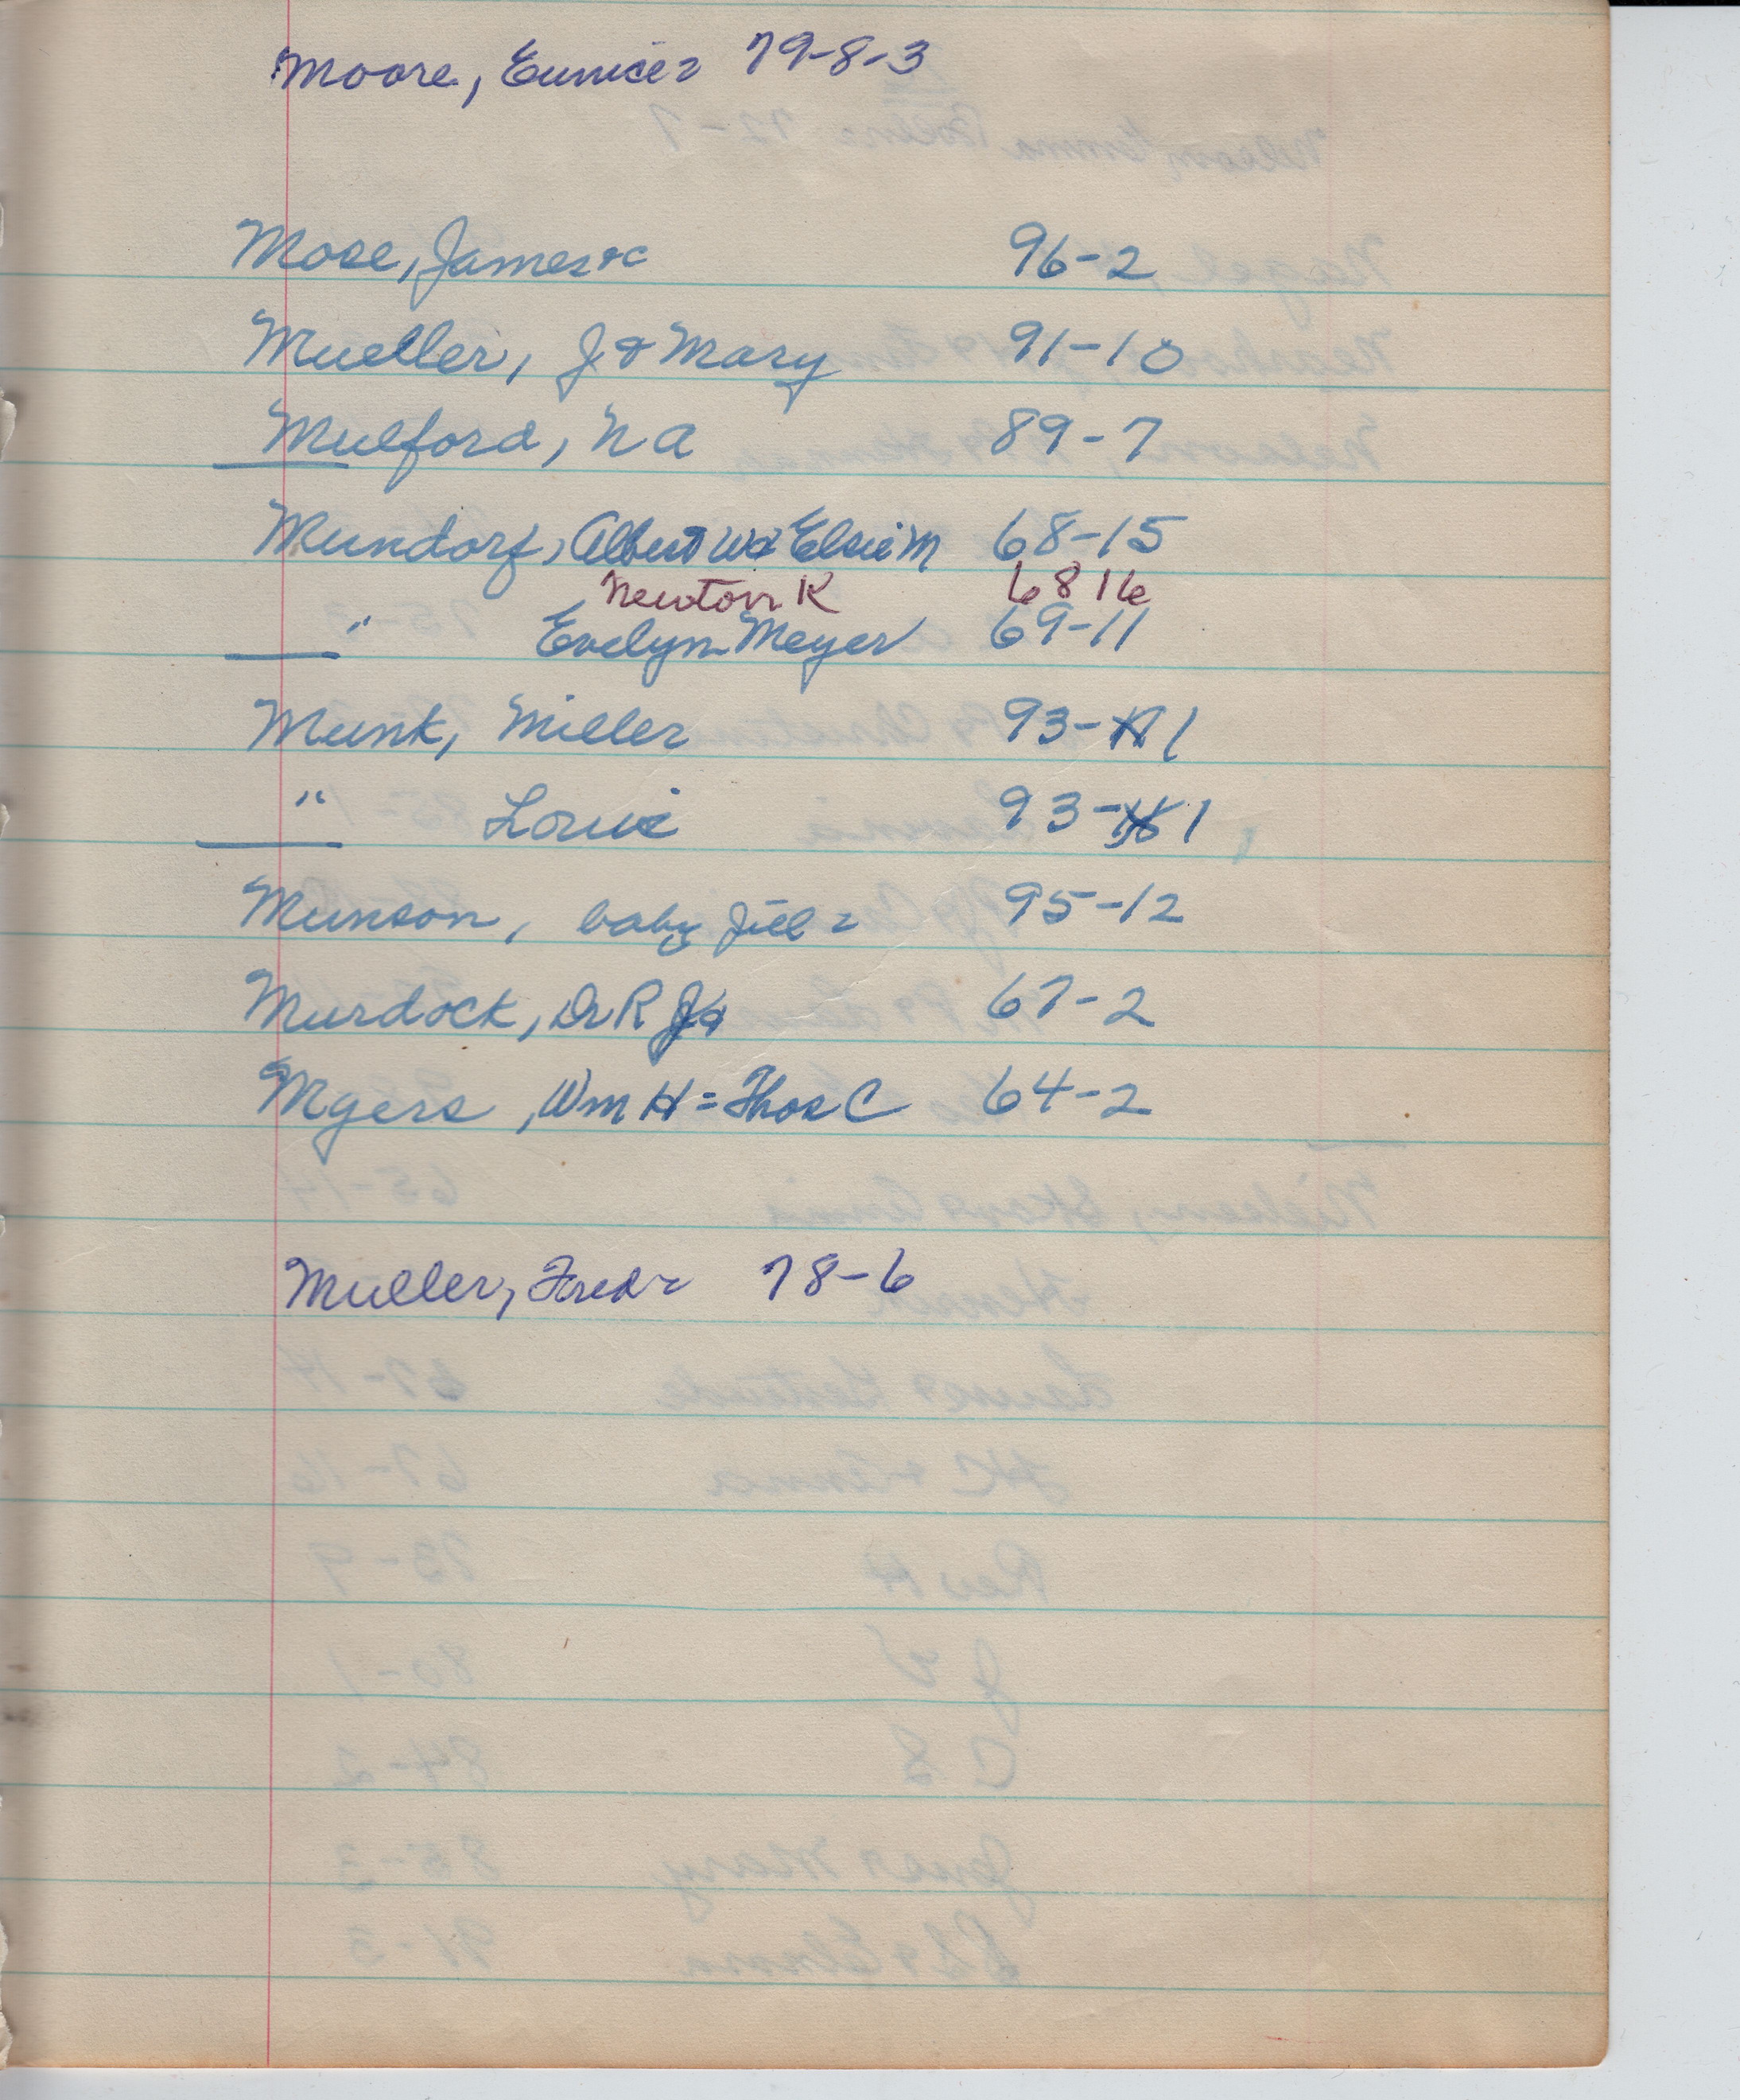 Moore, Eunice = 79-8-3
Mose, James &c 96-2
Mueller, J & Mary 91-10
Mulford, N A 89-7
Mundorf, Albert W & Elsie M 68-15
Newton K 68 16
" Evelyn Meyer 69-11
Munk, Miller 93-1
" Louie 93-1
Munson, baby Jill = 95-12
Murdock, Dr R J & 67-2
Myers, Wm H = Thos C 64-2
Muller, Fred = 78-6